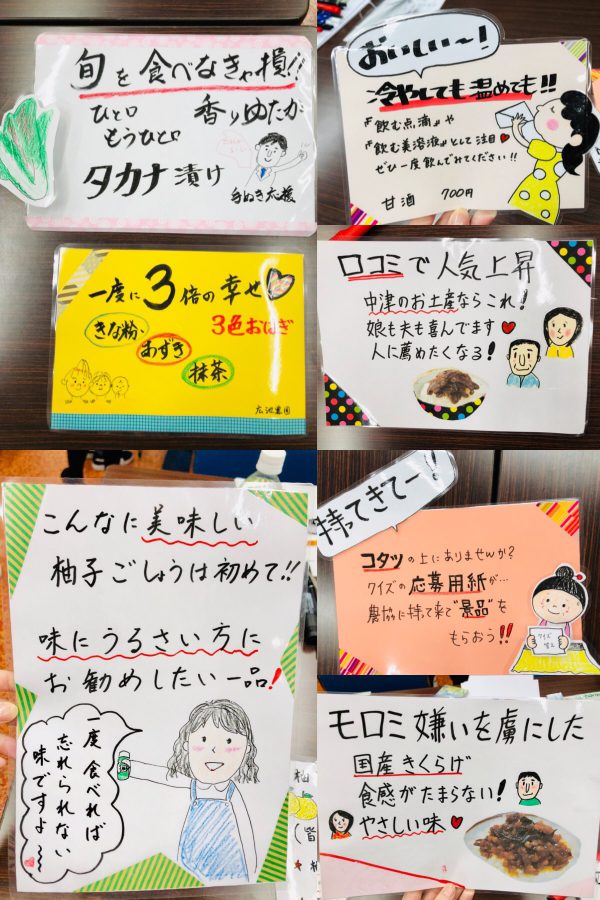 旬を食べなきゃ損!!
ひと口
もうひと口
香りゆたか
タカナ漬け
手ぬき応援
おいしい〜!
冷やしても温めても!!
『飲む点滴』や
『飲む美溶液』として注目♥
ぜひ一度飲んでみてください!!
甘酒 700円
一度に3倍の幸せ♡
きな粉
あずき
抹茶
3色おはぎ
広池農園
口コミで人気上昇
中津のお土産ならこれ!
娘も夫も喜んでます♥
人に薦めたくなる!
こんなに美味しい
柚子ごしょうは初めて!!
味にうるさい方に
お勧めしたい一品!
一度食べれば
忘れられない
味ですよ〜
持ってきてー!
コタツの上にありませんか?
クイズの応募用紙が…
農協に持って来て"景品"を
もらおう!!
クイズ
モロミ嫌いを虜にした
国産きくらげ
食感がたまらない!
やさしい味♥